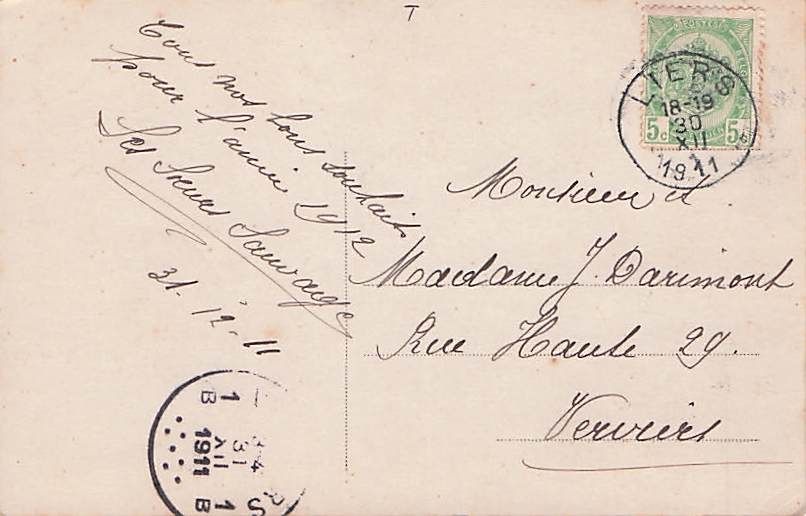 T
Tous nos bons souhaits
pour l'année 1912
Les Soeurs Sauvage
31-12-11
5c 5c
LIERS
18-19
30
XII
1911
Monsieur et
Madame J. Darimont
Rue Haute 29.
Verviers
1
B
4
31
XII
1911
S
1
B